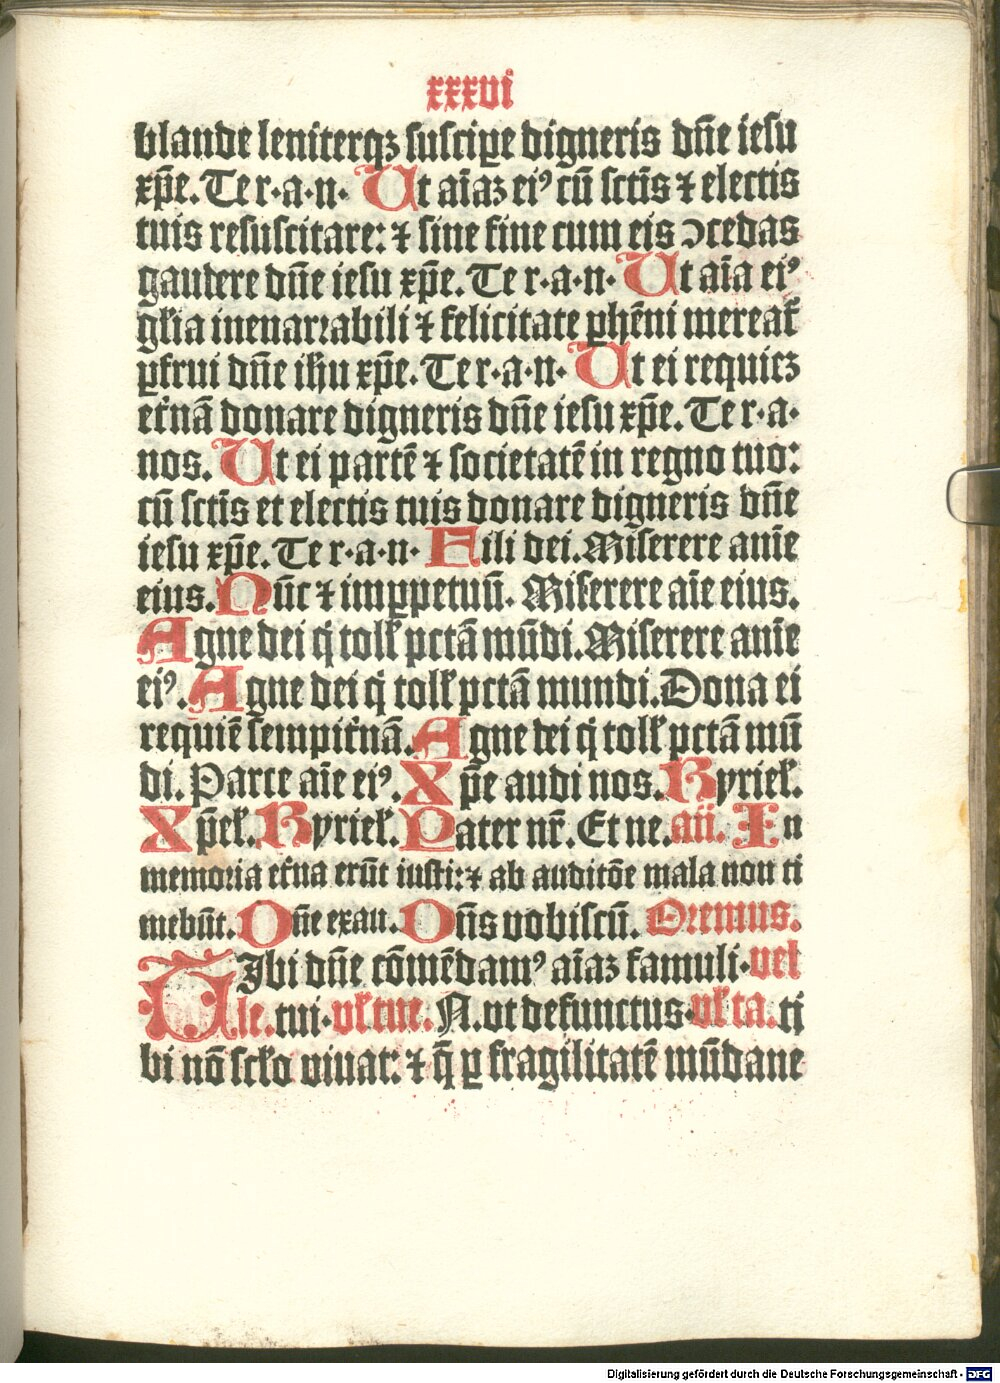 xxxvi
blande leniterqꝫ suscipe digneris dn̄e iesu
xp̄e. Te r·a·n· Ut aīaꝫ eiꝰ cū sctīs ⁊ electis
tuis resuscitare: ⁊ sine fine cum eis ↄcedas
gaudere dn̄e iesu xp̄e. Te r·a·n· Ut aīa eiꝰ
gl̄ia inenarrabili ⁊ felicitate ꝑhēni mereat᷑
ꝑfrui dn̄e ih̄u xp̄e. Te r·a·n· Ut ei requieꝫ
et᷑nā donare digneris dn̄e iesu xp̄e. Te r·a·
nos. Ut ei partē ⁊ societatē in regno tuo:
cū sctīs et electis tuis donare digneris dn̄e
iesu xp̄e. Te r·a·n· Fili dei. Miserere anīe
eius. Nūc ⁊ imꝑpetuū. Miserere aīe eius.
Agne dei q̇ toll᷑ pctā mūdi. Miserere anīe
eiꝰ. Agne dei q̇ toll᷑ pctā mundi. Dona ei
requiē sempit᷑nā. Agne dei q̇ toll᷑ pctā mū
di. Parce aīe eiꝰ. Xp̄e audi nos. Kyriel᷑.
Xp̄el᷑. Kyriel᷑. Pater nr̄. Et ne. añ. In
memoria et᷑na erūt iusti: ⁊ ab auditōe mala non ti
mebūt. Dn̄e exau. Dn̄s vobiscū. Oremus.
TIbi dn̄e cōmēdamꝰ aīaꝫ famuli· vel᷑
le. tui· vl᷑ tue. N. vt defunctus· vl᷑ ta. ti
bi nō scl᷑o viuat: ⁊ q̄ ꝑ fragilitatē mūdane
Digitalisierung gefördert durch die Deutsche Forschungsgemeinschaft - DFG